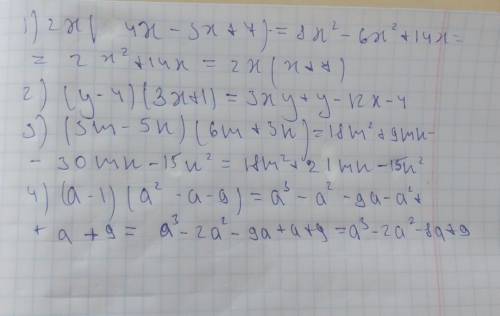 1) 2x( 4x - 3x + 7) = 8x² - 6x² + 14x =
= 2x² + 14x = 2x(x + 7)
2) (y - 4)(3x + 1) = 3xy + y - 12x - 4
3) (3m - 5n)(6m + 3n) = 18m² + 9mn -
- 30mn - 15n² = 18m² + 21mn - 15n²
4) (a - 1)(a² - a - 9) = a³ - a² - 9a - a² +
+ a + 9 = a³ - 2a² - 9a + a + 9 = a³ - 2a² - 8a + 9